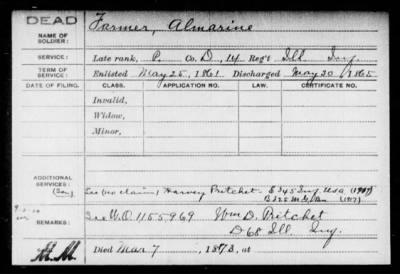 DEAD
NAME OF SOLDIER: Farmer, Almarine
SERVICE: Late rank, P. Co. D, 14 Reg't Ill. Inf.
TERM OF SERVICE: Enlisted May 25, 1861 Discharged May 20, 1865
DATE OF FILING. CLASS. APPLICATION NO. LAW. CERTIFICATE NO.
Invalid,
Widow,
Minor,
ADDITIONAL SERVICES:
(Son) See (no claim) Harvey Pritchet E 345 Inf. U.S.A. (1917)
B 325 M.G. Bn (1917)
REMARKS: See W.O. 1155969 Wm D. Pritchet
D 68 Ill. Inf.
Died Mar 7, 1873, at